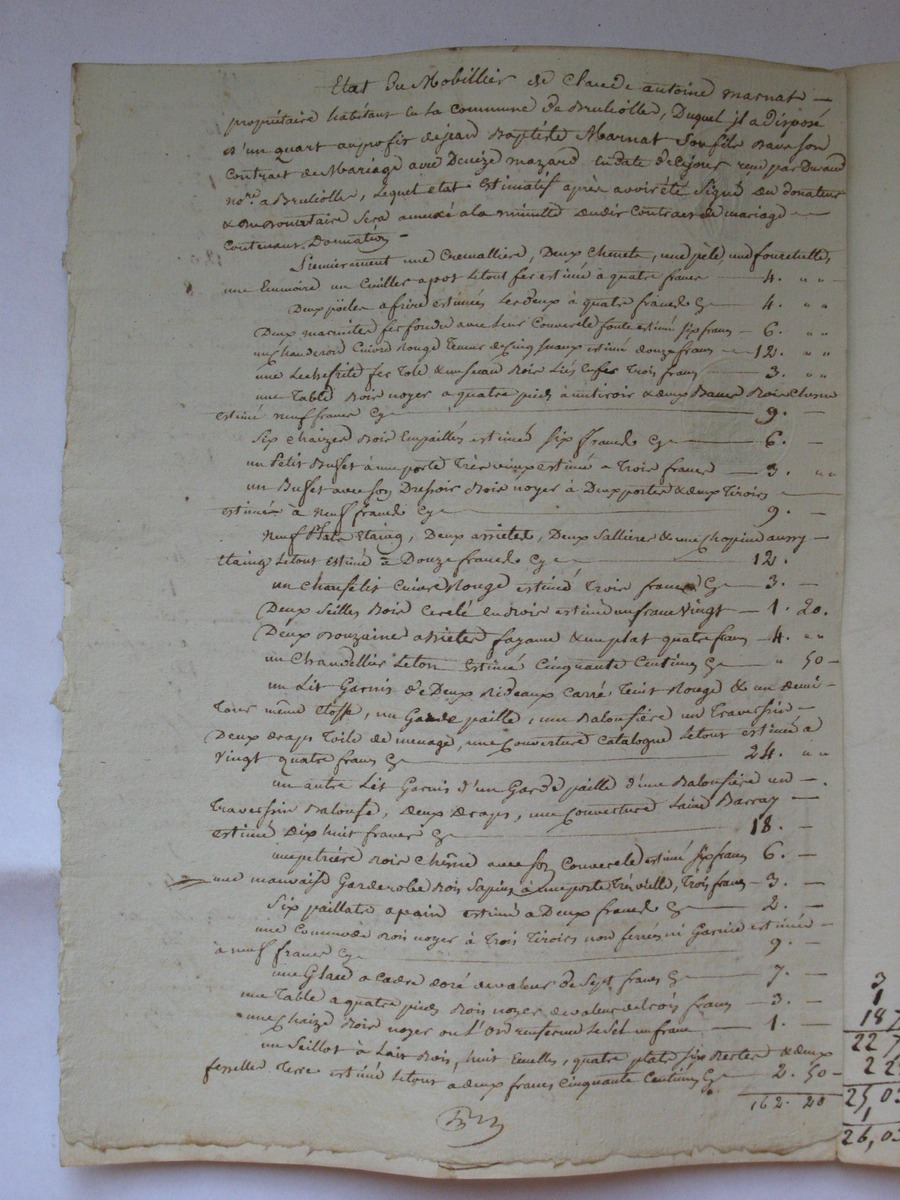 Etat du Mobillier de Claude antoine marnat —
propriétaire habitant de la Commune de Bruliolle, Duquel jl a Disposé
d'un quart au profit de jean Baptiste Marnat Son fils dans son
Contrat de Mariage avec Denize mazard en date de ce jour reçu par Durand
no.re a Bruliolle, lequel etat Estimatif après avoir été Signé du donateur
& du donnataire Sera annexé a la minutte dudit Contrat de mariage
Contenant Donnation —
Premierement une Cremallier, Deux Chenets, une pele, une fourchette,
une une Cuiller a pot le tout fer estimé a quatre francs — 4. " "
Deux poëles a frire estimés les deux à quatre francs Cy — 4. " "
Deux marmites fer fondu avec leur Couvercle fonte estimé six francs — 6. " "
un Chauderon Cuivre Rouge teneur de Cinq Seaux estimé douze francs — 12. " "
une Lechefrite fer tole & un seau Bois liés en fer trois francs — 3. " "
une Table Bois noyer a quatre pieds à un tiroir & deux Bancs Bois Chesne
estimé neuf francs Cy — 9. —
Six chaizes Bois Empaillés estimés six francs Cy — 6. —
un Petit Buffet à une porte très vieux estimé a Trois francs — 3. " "
un Buffet avec son Dressoir Bois noyer à Deux portes & deux Tiroirs
estimés à neuf francs Cy — 9. —
neuf Plats Etaing, Deux assietes, Deux Sallieres & une Chopine aussy
Etaing le tout estimé à Douze francs Cy — 12.
un Chaufelit Cuivre Rouge estimé Trois francs Cy — 3. —
Deux Seilles Bois Cerclé en Bois estimé un franc Vingt — 1. 20.
Deux Douzaine assietes fayance & un plat quatre francs — 4. " "
un Chandellier Leton estimé Cinquante Centimes Cy — " 50 —
un Lit Garnis de Deux Rideaux Carré Teint Rouge & un demi -
Tour même Etoffe, un Garde paille, une Balousiére un Traversin —
Deux draps Toile de menage, une Couverture Catalogne Le tout estimé a
Vingt quatre francs Cy — 24. " "
un autre Lit Garnis d'un Garde paille d'une Balousiére un —
Traversin Balouse, Deux draps, une Couverture Laine —
estimé Dix huit francs Cy — 18. —
une petriére Bois Chêne avec son Couvercle estimé Six francs 6. —
une mauvaise Garderobe Bois Sapin à une porte très vielle, trois francs — 3. —
Six paillats a pain estimé a Deux francs Cy — 2. —
une Commode Bois noyer à Trois Tiroirs non ferrés ni Garnie estimée
à neuf francs Cy — 9. —
une Glace a Cadre doré de valeur de Sept francs Cy — 7. —
une Table a quatre pieds Bois noyer de valeur de trois francs — 3. —
une Chaize Bois noyer ou l'on renferme le Sel un franc — 1. —
un Seillot à Lait Bois, huit quatre plats six & deux
faisselles Terre estimé le tout a deux francs Cinquante Centimes Cy — 2. 50 —
162. 20
3
1
187
22 7
2 2
25,0
1
26,03